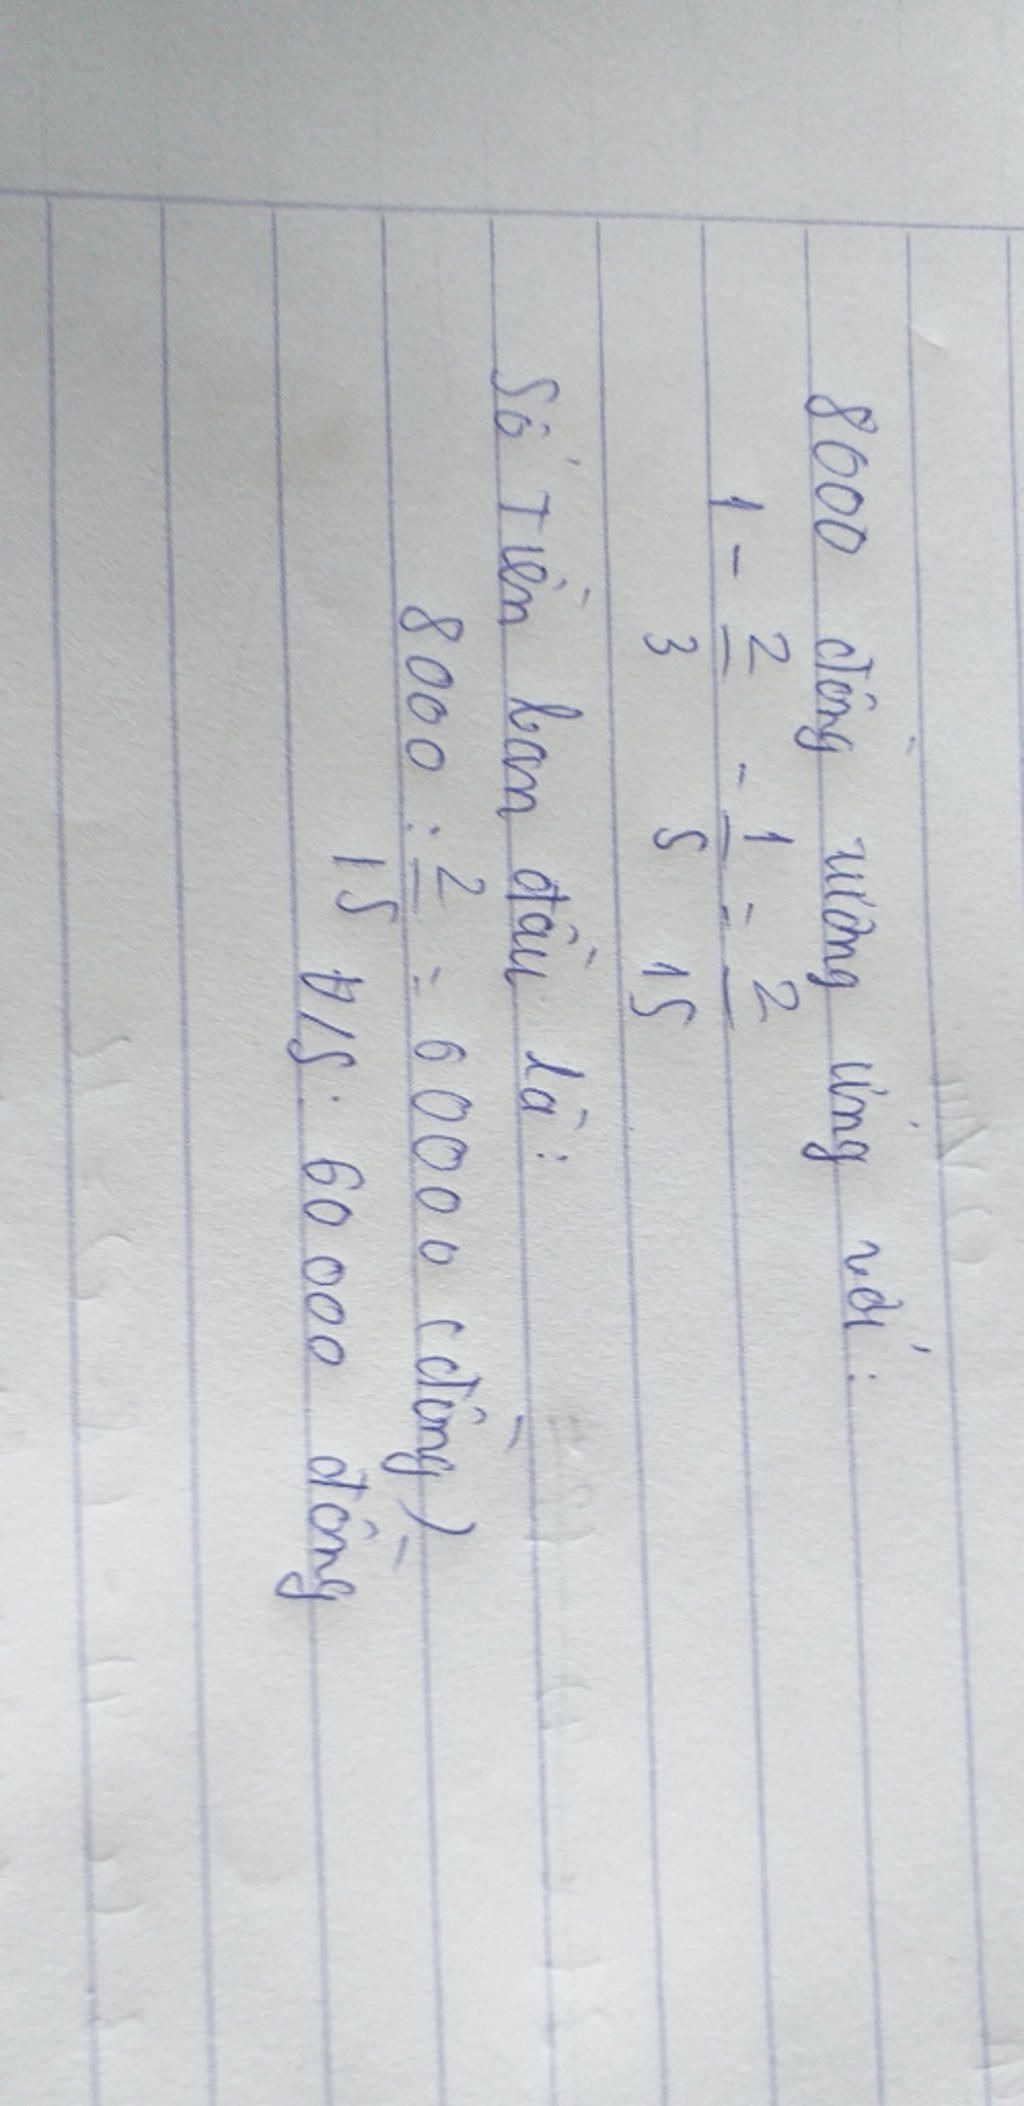 8000 đồng tương ứng với:
1 - 2/3 - 1/5 = 2/15
Số tiền ban đầu là:
8000 : 2/15 = 60000 (đồng)
Đ/S: 60 000 đồng